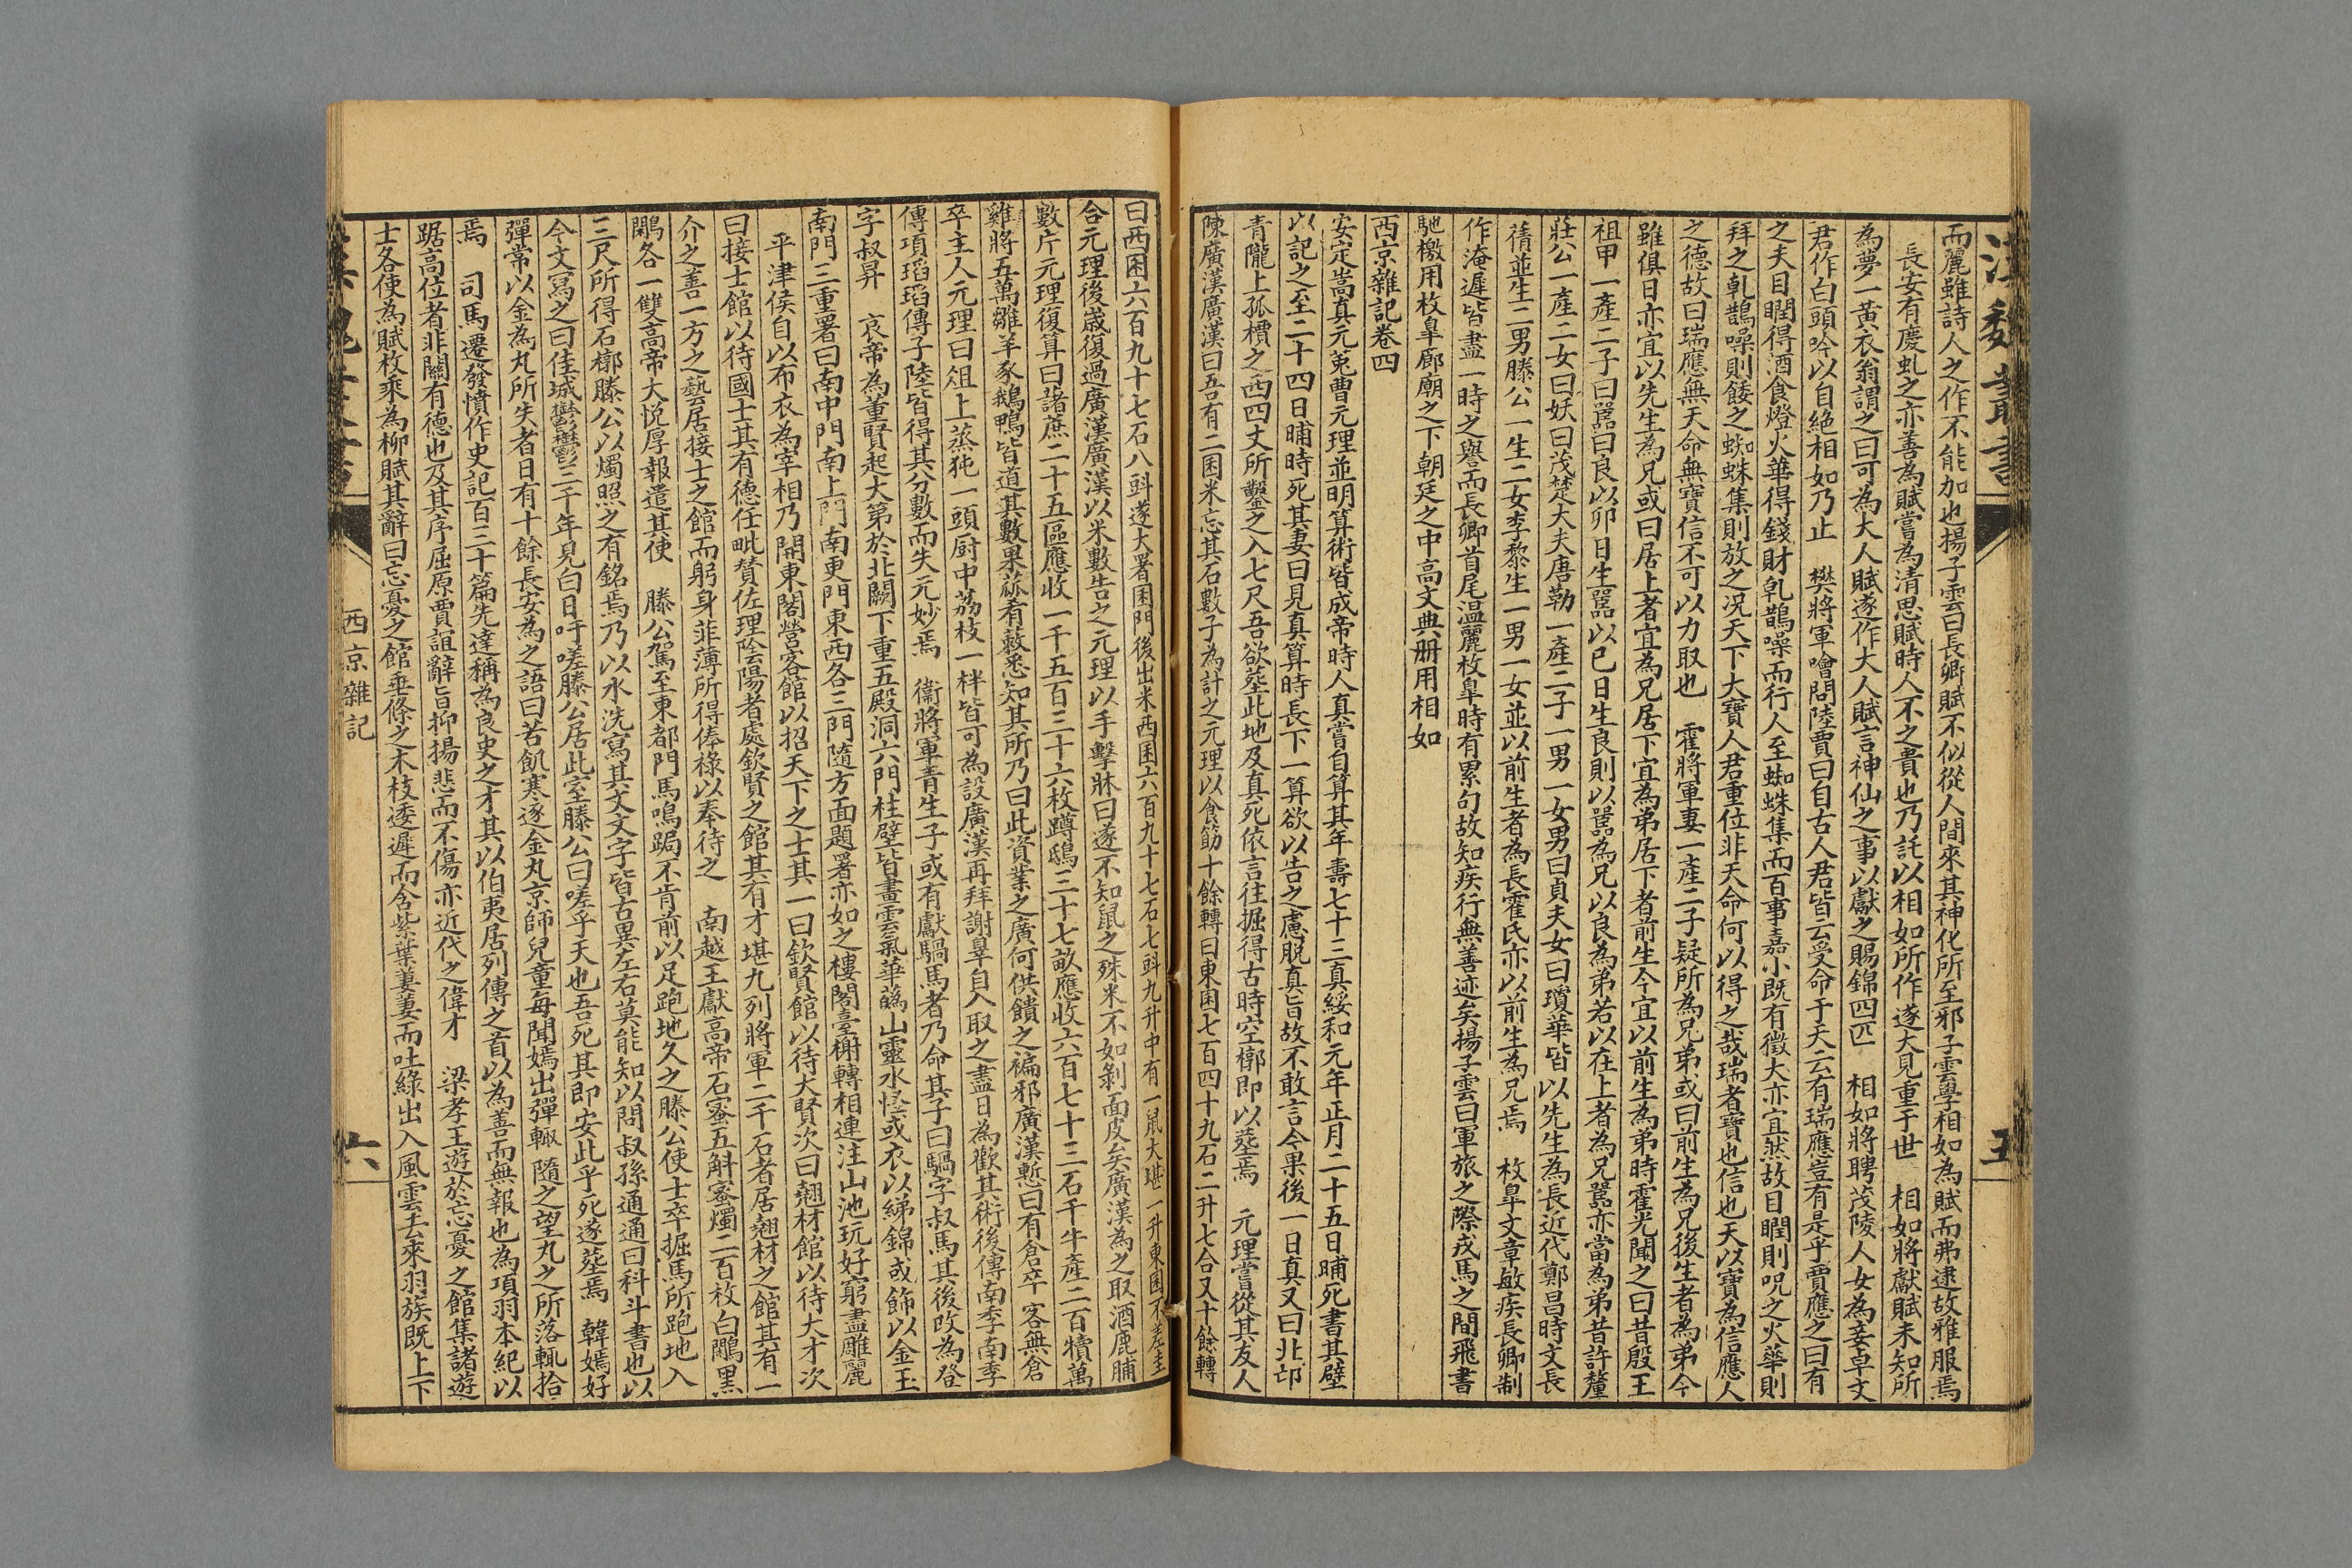 漢魏叢書
五
而麗雖詩人之作不能加也揚子雲曰長卿賦不似從人間來其神化所至邪子雲學相如為賦而弗逮故雅服焉
長安有慶虬之亦善為賦嘗為清思賦時人不之貴也乃託以相如所作遂大見重于世　相如將獻賦未知所
為夢一黃衣翁謂之曰可為大人賦遂作大人賦言神仙之事以獻之賜錦四匹　相如將聘茂陵人女為妾卓文
君作白頭吟以自絕相如乃止　樊將軍噲問陸賈曰自古人君皆云受命于天云有瑞應豈有是乎賈應之曰有
之夫目瞤得酒食燈火華得錢財乹鵲噪而行人至蜘蛛集而百事嘉小既有徵大亦宜然故目瞤則呪之火華則
拜之乹鵲噪則餧之蜘蛛集則放之况天下大寶人君重位非天命何以得之哉瑞者寶也信也天以寶為信應人
之德故曰瑞應無天命無寶信不可以力取也　霍將軍妻一產二子疑所為兄弟或曰前生為兄後生者為弟今
雖俱日亦宜以先生為兄或曰居上者宜為兄居下宜為弟居下者前生今宜以前生為弟時霍光聞之曰昔殷王
祖甲一產二子曰嚚曰良以卯日生嚚以巳日生良則以嚚為兄以良為弟若以在上者為兄嚚亦當為弟昔許釐
莊公一產二女曰妖曰茂楚大夫唐勒一產二子一男一女男曰貞夫女曰瓊華皆以先生為長近代鄭昌時文長
蒨並生二男滕公一生二女李黎生一男一女並以前生者為長霍氏亦以前生為兄焉　枚臯文章敏疾長卿制
作淹遲皆盡一時之譽而長卿首尾溫麗枚臯時有累句故知疾行無善迹矣揚子雲曰軍旅之際戎馬之間飛書
馳檄用枚臯廊廟之下朝廷之中高文典册用相如
西京雜記卷四
安定嵩真元菟曹元理並明算術皆成帝時人真嘗自算其年壽七十三真綏和元年正月二十五日晡死書其壁
以記之至二十四日晡時死其妻曰見真算時長下一算欲以告之慮脫真旨故不敢言今果後一日真又曰北邙
青隴上孤檟之西四丈所鑿之入七尺吾欲塟此地及真死依言往掘得古時空槨即以塟焉　元理嘗從其友人
陳廣漢廣漢曰吾有二囷米忘其石數子為計之元理以食筯十餘轉曰東囷七百四十九石二升七合又十餘轉
曰西囷六百九十七石八㪷遂大署囷門後出米西囷六百九十七石七㪷九升中有一鼠大堪一升東囷不差圭
合元理後歲復過廣漢廣漢以米數告之元理以手擊牀曰遂不知鼠之殊米不如剝面皮矣廣漢為之取酒鹿脯
數片元理復算曰諸蔗二十五區應收一千五百三十六枚蹲鴟三十七畝應收六百七十三石千牛產二百犢萬
雞將五萬雛羊豕鵝鴨皆道其數果蓏肴蔌悉知其所乃曰此資業之廣何供饋之褊邪廣漢慙曰有倉卒客無倉
卒主人元理曰俎上蒸㹠一頭厨中荔枝一柈皆可為設廣漢再拜謝辠自入取之盡日為歡其術後傳南季南季
傳項瑫瑫傳子陸皆得其分數而失元妙焉　衞將軍青生子或有獻騧馬者乃命其子曰騧字叔馬其後改為登
字叔昇　哀帝為董賢起大第於北闕下重五殿洞六門柱壁皆畫雲氣華蘤山靈水怪或衣以綈錦或飾以金玉
南門三重署曰南中門南上門南更門東西各三門隨方面題署亦如之樓閣臺榭轉相連注山池玩好窮盡雕麗
平津侯自以布衣為宰相乃開東閣營客館以招天下之士其一曰欽賢館以待大賢次曰翹材館以待大才次
曰接士館以待國士其有德任毗贊佐理陰陽者處欽賢之館其有才堪九列將軍二千石者居翹材之館其有一
介之善一方之藝居接士之館而躬身菲薄所得俸祿以奉待之　南越王獻高帝石蜜五斛蜜燭二百枚白鷴黑
鷴各一雙高帝大悅厚報遣其使　滕公駕至東都門馬鳴跼不肯前以足跑地久之滕公使士卒掘馬所跑地入
三尺所得石槨滕公以燭照之有銘焉乃以水洗寫其文文字皆古異左右莫能知以問叔孫通通曰科斗書也以
今文寫之曰佳城鬱鬱三千年見白日吁嗟滕公居此室滕公曰嗟乎天也吾死其即安此乎死遂塟焉　韓嫣好
彈常以金為丸所失者日有十餘長安為之語曰苦飢寒逐金丸京師兒童每聞嫣出彈輙隨之望丸之所落輒拾
焉　司馬遷發憤作史記百三十篇先達稱為良史之才其以伯夷居列傳之首以為善而無報也為項羽本紀以
踞高位者非關有德也及其序屈原賈誼辭旨抑揚悲而不傷亦近代之偉才　梁孝王遊於忘憂之館集諸遊
士各使為賦枚乘為柳賦其辭曰忘憂之館垂條之木枝逶遲而含紫葉萋萋而吐綠出入風雲去來羽族既上下
西京雜記
六